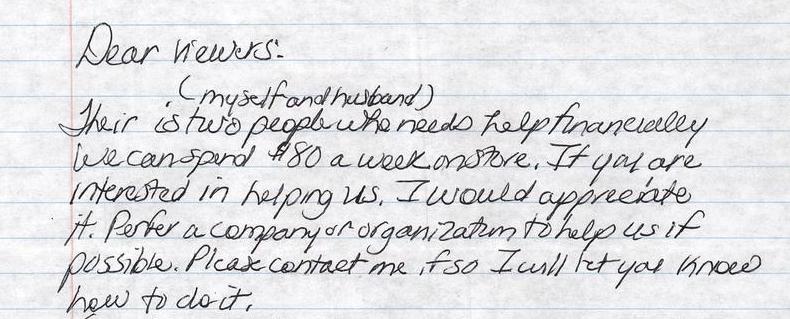 Dear viewers:
(myself and husband)
Their is two people who needs help financially
We can spend $80 a week on store. If you are
interested in helping us. I would appreciate
it. Perfer a company or organization to help us if
possible. Please contact me if so I will let you know
how to do it.